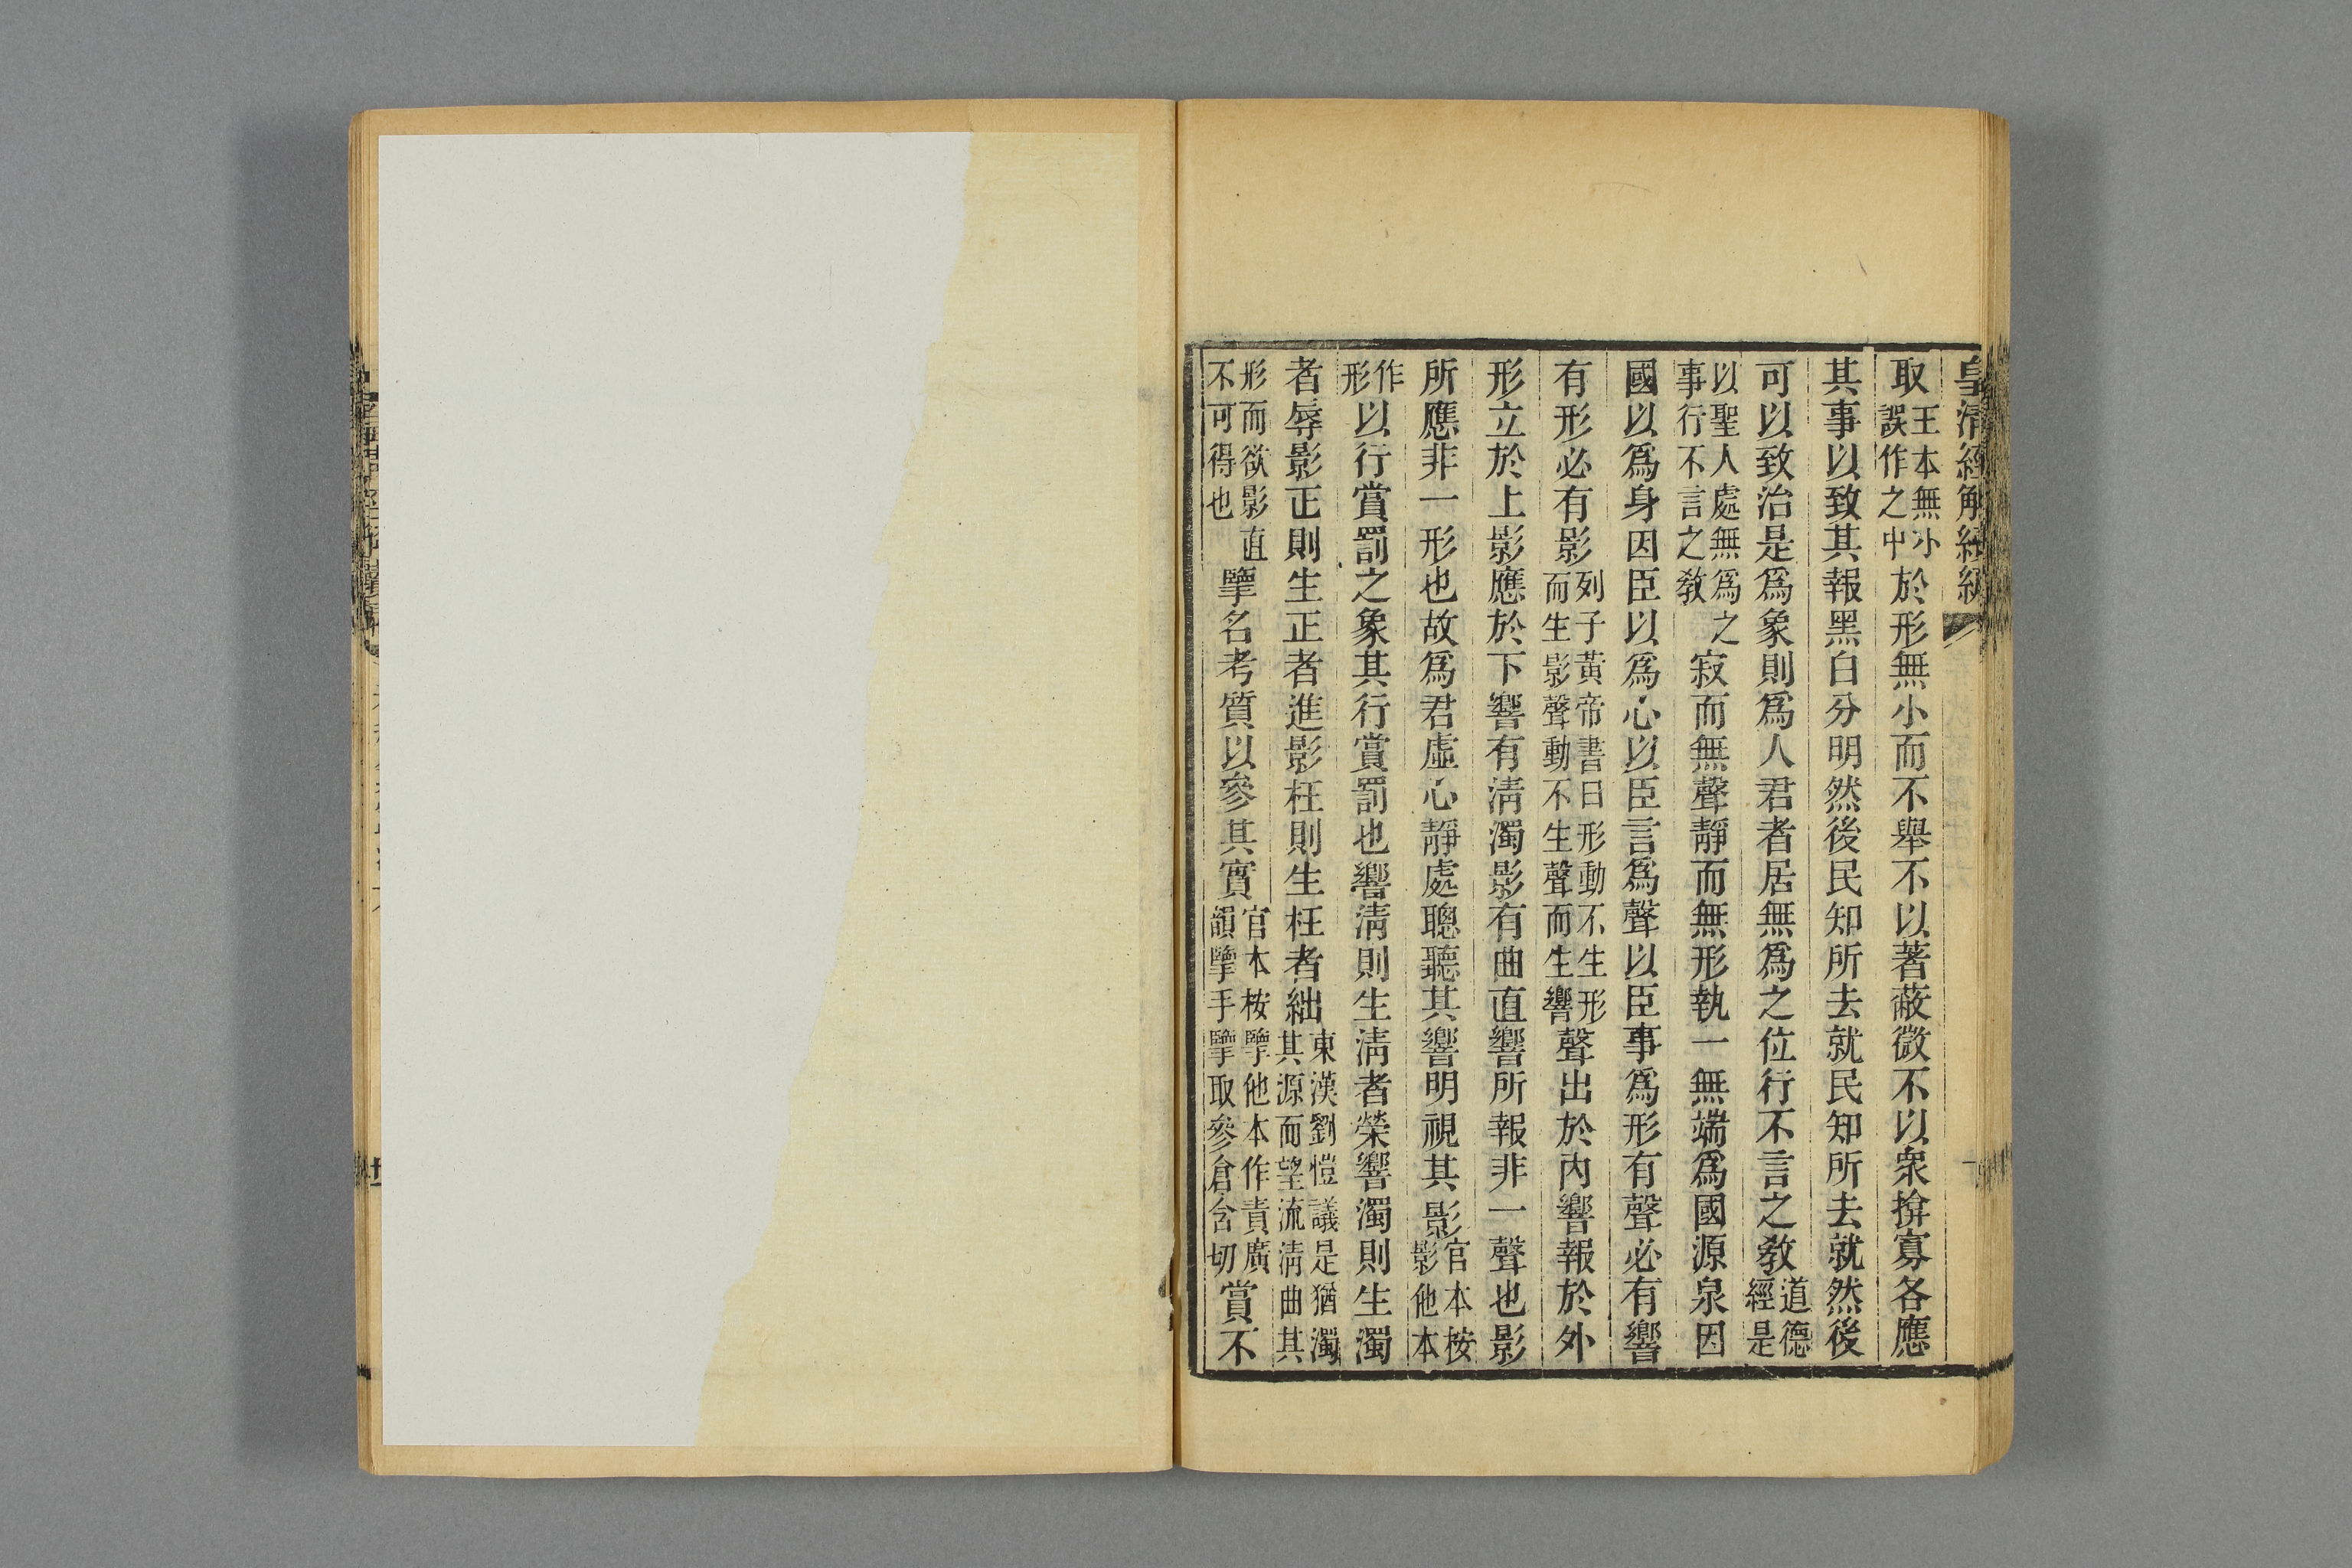 皇清經解續編
取王本無小誤作之中於形無小而不舉不以著蔽微不以衆揜寡各應
其事以致其報黑白分明然後民知所去就民知所去就然後
可以致治是爲象則爲人君者居無爲之位行不言之敎道德經是
以聖人處無爲之事行不言之敎寂而無聲靜而無形執一無端爲國源泉因
國以爲身因臣以爲心以臣言爲聲以臣事爲形有聲必有響
有形必有影列子黃帝書曰形動不生形而生影聲動不生聲而生響聲出於內響報於外
形立於上影應於下響有淸濁影有曲直響所報非一聲也影
所應非一形也故爲君虛心靜處聰聽其響明視其影官本桉影他本
作形以行賞罰之象其行賞罰也響淸則生淸者榮響濁則生濁
者辱影正則生正者進影枉則生枉者絀東漢劉愷議是猶濁其源而望流淸曲其
形而欲影直不可得也擥名考質以參其實官本桉擥他本作責廣韻擥手擥取參倉含切賞不